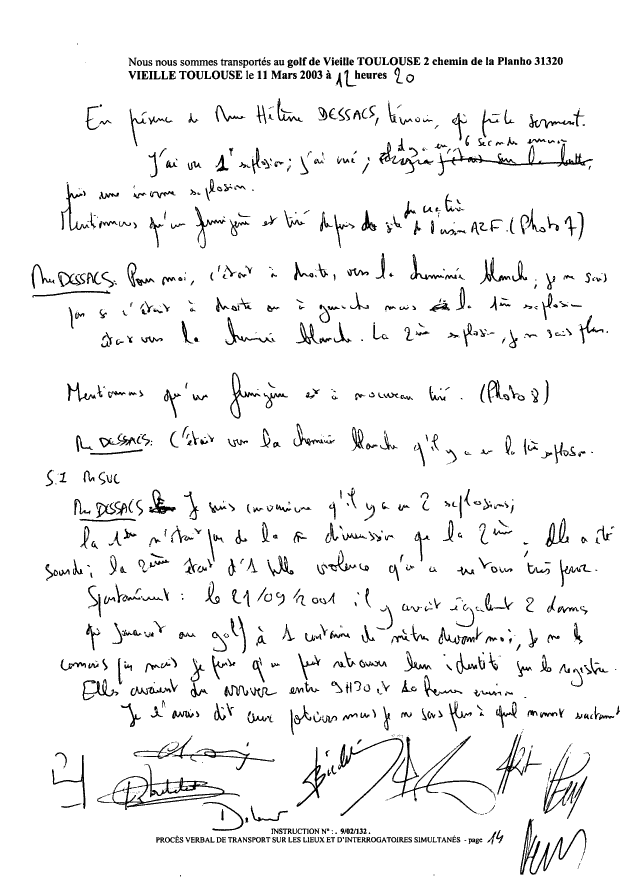 Nous nous sommes transportés au golf de Vieille TOULOUSE 2 chemin de la Planho 31320
VIEILLE TOULOUSE le 11 Mars 2003 à 12 heures 20
En présence de Mme Hélène DESSACS, témoin, qui prête serment.
il y a eu 6 secondes environ
J'ai vu 1 explosion; j'ai crié; j'étais sur la butte,
puis une énorme explosion.
du cratère
Mentionnons qu'un fumigène est tiré depuis le site de l'usine AZF. (Photo 7)
Mme DESSACS: Pour moi, c'était à droite, vers la cheminée blanche; je ne sais
pas si c'était à droite ou à gauche mais la 1ère explosion
était vers la cheminée blanche. La 2ème explosion, je ne sais plus.
Mentionnons qu'un fumigène est à nouveau tiré. (Photo 8)
Mme DESSACS: C'était vers la cheminée blanche qu'il y a eu la 1ère explosion.
S.I MSUC
Mme DESSACS Je suis convaincue qu'il y a eu 2 explosions;
la 1ère n'était pas de la dimension que la 2ème. Elle a été
sourde; la 2ème était d'1 telle violence qu'on a
Spontanément: le 21/09/2001 il y avait égalemt 2 dames
qui jouaient au golf à 1 centaine de mètres devant moi, je ne les
connais pas mais je pense qu'on peut retrouver leur identité sur le registre.
Elles avaient du arriver entre 9H30 et 10 heures environ.
Je l'avais dit aux policiers mais je ne sais plus à quel moment exactement
INSTRUCTION N° : . 9/02/132 .
PROCÈS VERBAL DE TRANSPORT SUR LES LIEUX ET D'INTERROGATOIRES SIMULTANÉS - page 14